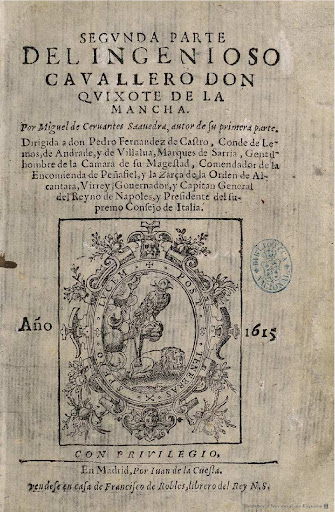 SEGVNDA PARTE
DEL INGENIOSO
CAVALLERO DON
QVIXOTE DE LA
MANCHA.
Por Miguel de Ceruantes Saauedra, autor de su primera parte.
Dirigida a don Pedro Fernandez de Castro, Conde de Le-
mos, de Andrade, y de Villalua, Marques de Sarria, Gentil-
hombre de la Camara de su Magestad, Comendador de la
Encomienda de Peñafiel, y la Zarça de la Orden de Al-
cantara, Virrey, Gouernador, y Capitan General
del Reyno de Napoles, y Presidente del su-
premo Consejo de Italia.
Año
1615
POST TENEBRAS
SPERO LVCEM
CON PRIVILEGIO.
En Madrid, Por Iuan de la Cuesta.
vendese en casa de Francisco de Robles, librero del Rey N.S.